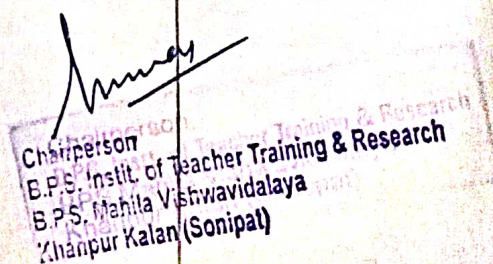 Chairperson
B.P.S. Instit. of Teacher Training & Research
B.P.S. Mahila Vishwavidalaya
Khanpur Kalan (Sonipat)